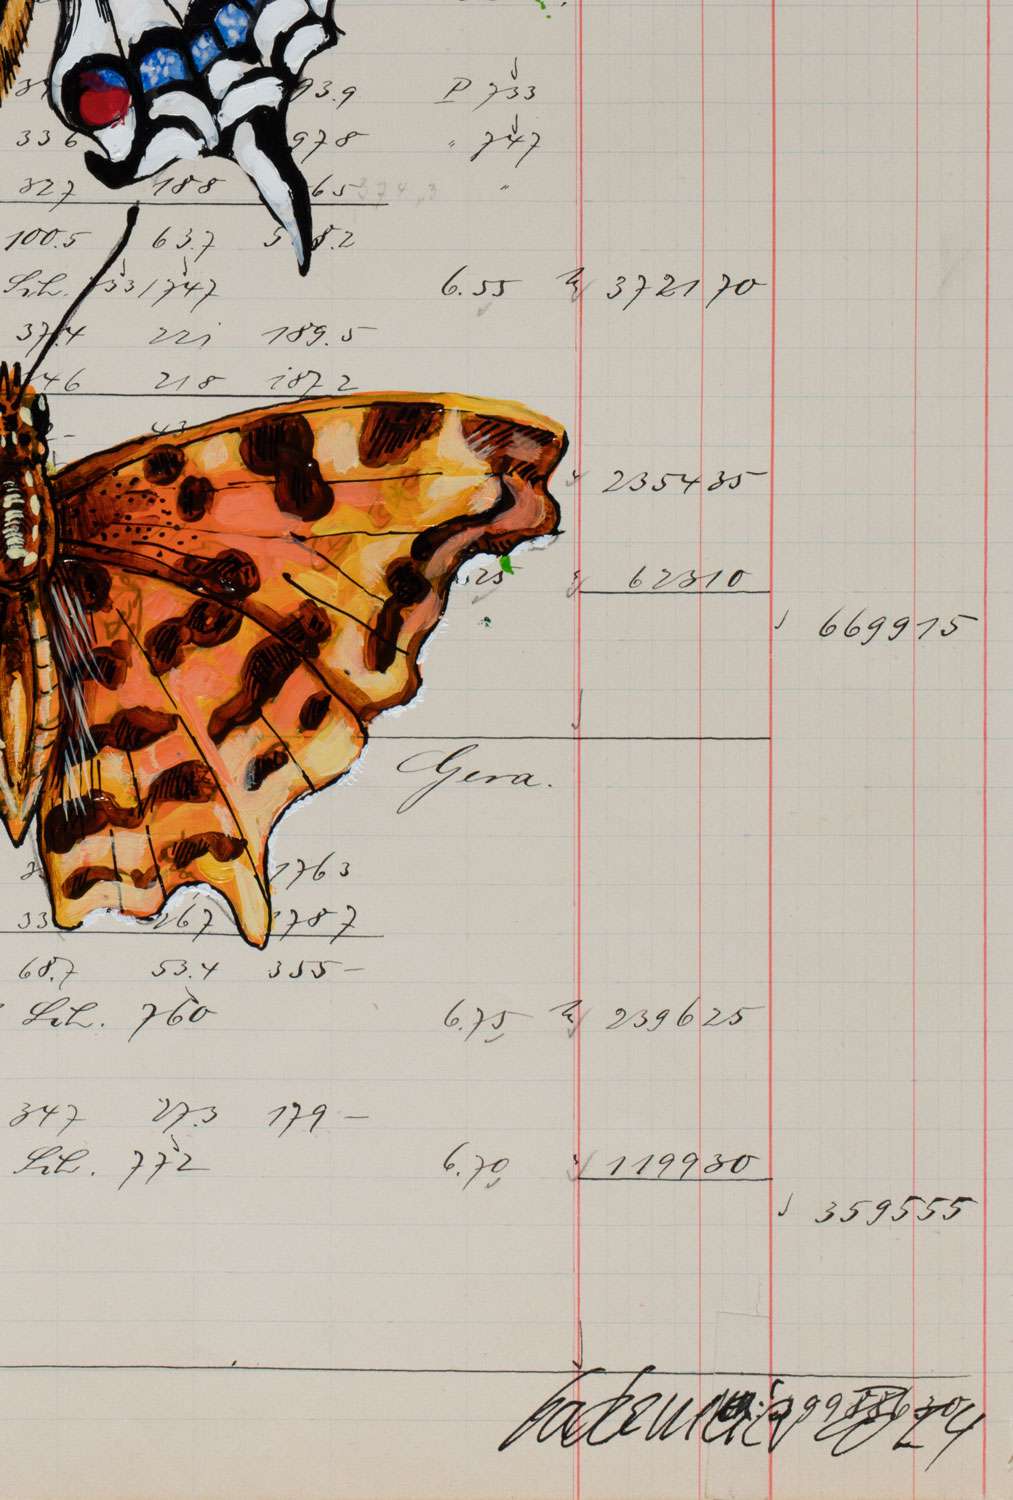 93.9 P 733
336 978 " 747
327 188 65 374,3 "
100.5 63.7 5 8.2
Lit. 733/747 6.55 M 372170
37.4 221 189.5
346 218 187 2
43
235435
.25 62310
669915
Gera.
1763
33 267 1787
68.7 53.4 355 —
Lit. 760 6.75 M 239625
347 27.3 179 —
Lit. 772 6.70 119930
359555